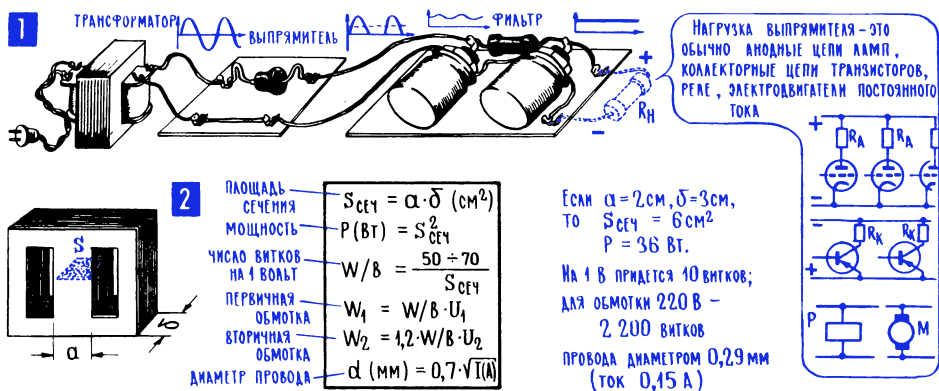 1
ТРАНСФОРМАТОР
ВЫПРЯМИТЕЛЬ
ФИЛЬТР
+
−
Rн
НАГРУЗКА ВЫПРЯМИТЕЛЯ – ЭТО
ОБЫЧНО АНОДНЫЕ ЦЕПИ ЛАМП,
КОЛЛЕКТОРНЫЕ ЦЕПИ ТРАНЗИСТОРОВ,
РЕЛЕ, ЭЛЕКТРОДВИГАТЕЛИ ПОСТОЯННОГО
ТОКА
+
RА RА
−
−
Rк Rк
+
Р М
2
S
а
δ
ПЛОЩАДЬ
СЕЧЕНИЯ
Sсеч = а·δ (см²)
МОЩНОСТЬ
Р(Вт) = S²сеч
ЧИСЛО ВИТКОВ
НА 1 ВОЛЬТ
W/В = 50 ÷ 70 / Sсеч
ПЕРВИЧНАЯ
ОБМОТКА
W₁ = W/В·U₁
ВТОРИЧНАЯ
ОБМОТКА
W₂ = 1,2·W/В·U₂
ДИАМЕТР ПРОВОДА
d (мм) = 0,7·√I(А)
Если а = 2см, δ = 3см,
то Sсеч = 6см²
Р = 36 Вт.
На 1 В придется 10 витков;
для обмотки 220 В –
2 200 витков
провода диаметром 0,29 мм
(ток 0,15 А)